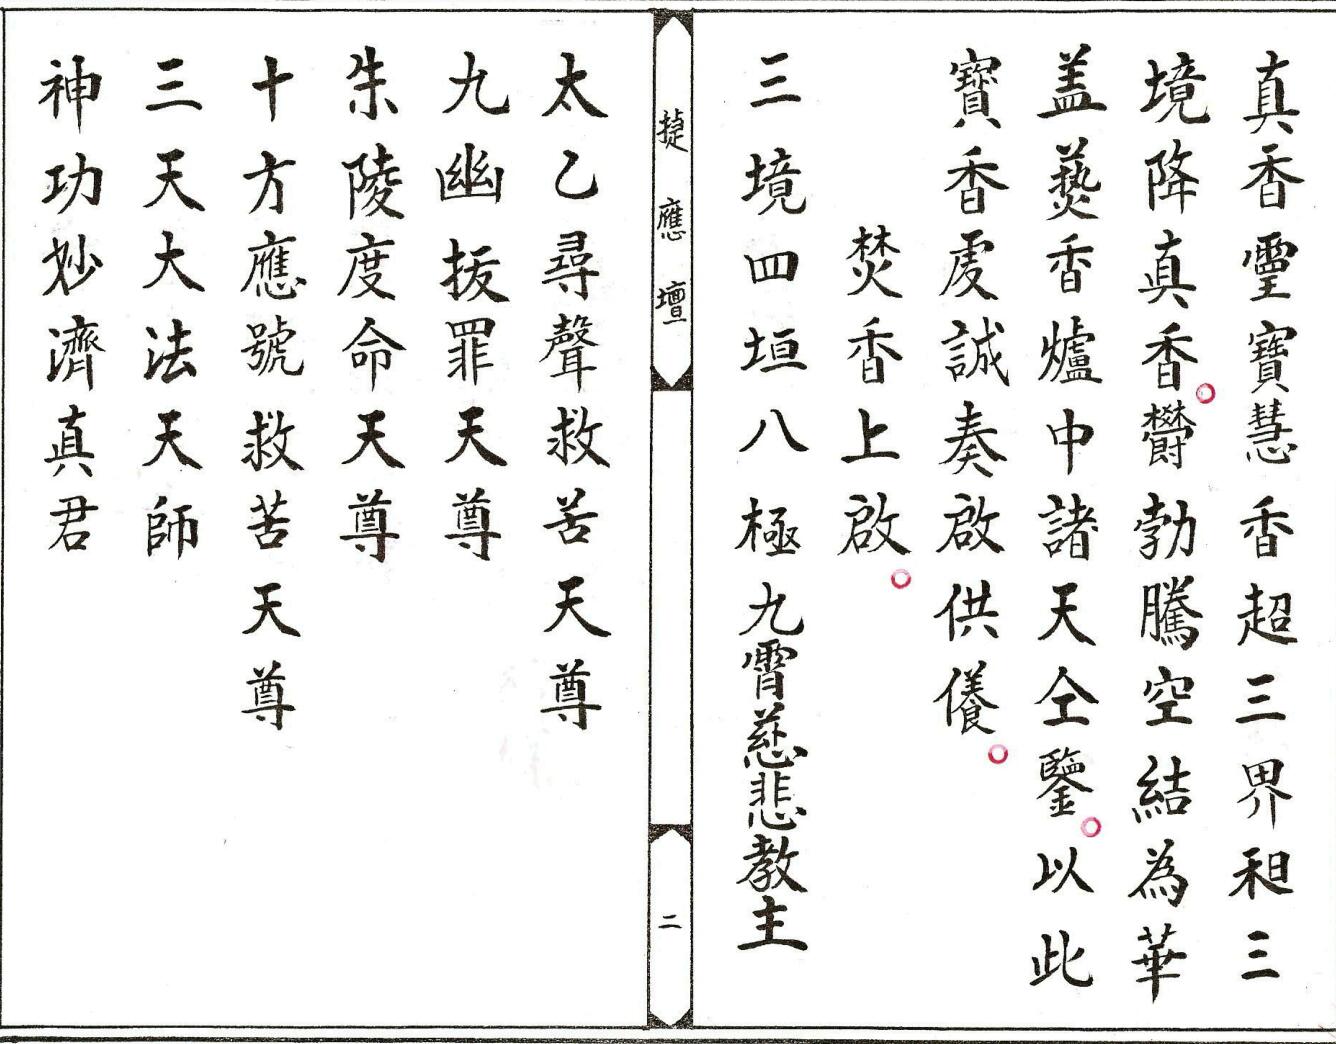 真香霊寶慧香超三界和三
境降真香欝勃騰空結為華
盖爇香爐中諸天仝鑒以此
寶香虔誠奏啟供養
焚香上啟
三境四垣八極九霄慈悲教主
捷應壇
二
太乙尋聲救苦天尊
九幽拔罪天尊
朱陵度命天尊
十方應號救苦天尊
三天大法天師
神功妙濟真君